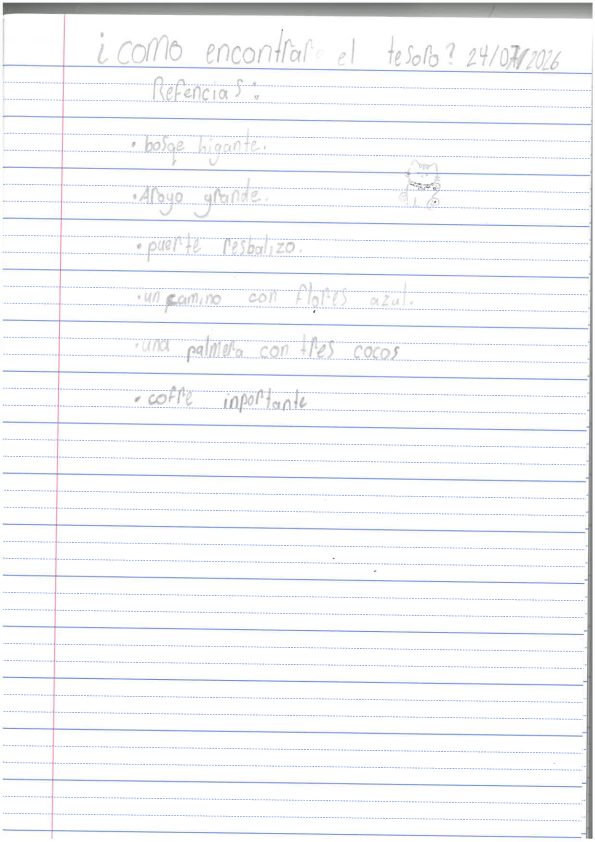 ¿como encontrar el tesoro? 24/07/2026
Refencias:
• bosqe gigante.
• Aroyo grande.
• puente resbalizo.
• un camino con flores azul.
• una palmera con tres cocos
• cofre inportante